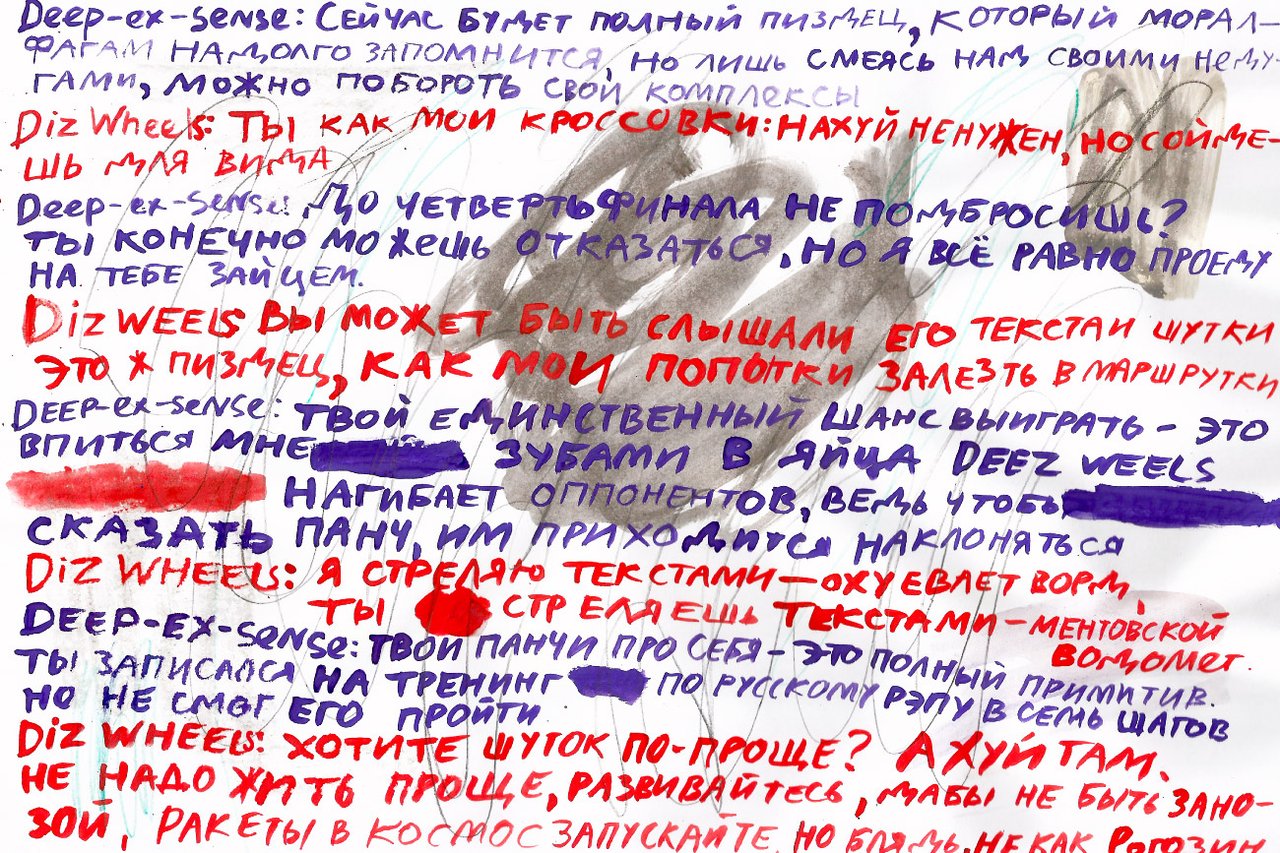 Deep-ex-sense: Сейчас будет полный пиздец, который морал-
фагам надолго запомнится, но лишь смеясь над своими неду-
гами, можно побороть свои комплексы
Diz Wheels: Ты как мои кроссовки: нахуй ненужен, но сойде-
шь для вида
Deep-ex-sense: До четвертьфинала не подбросишь?
Ты конечно можешь отказаться, но я всё равно проеду
на тебе зайцем.
Diz WEELS Вы может быть слышали его текстаи шутки
это ж пиздец, как мои попотки залезть в маршрутки
Deep-ex-sense: Твой единственный шанс выиграть - это
впиться мне зубами в яйца DEEZ WEELS
нагибает оппонентов, ведь чтобы
сказать панч, им приходится наклоняться
Diz WHEELS: Я стреляю текстами—охуевлет ворд,
ты стреляешь текстами-ментовской
водомет.
DEEP-EX-SENSE: Твои панчи про себя - это полный примитив.
Ты записался на тренинг по русскому рэпу в семь щагов
но не смог его пройти
Diz WHEELS: Хотите шуток по-проще? А хуй там.
Не надо жить проще, развивайтесь, дабы не быть зано-
зой, ракеты в космос запускайте, но блядь, не как Рогозин